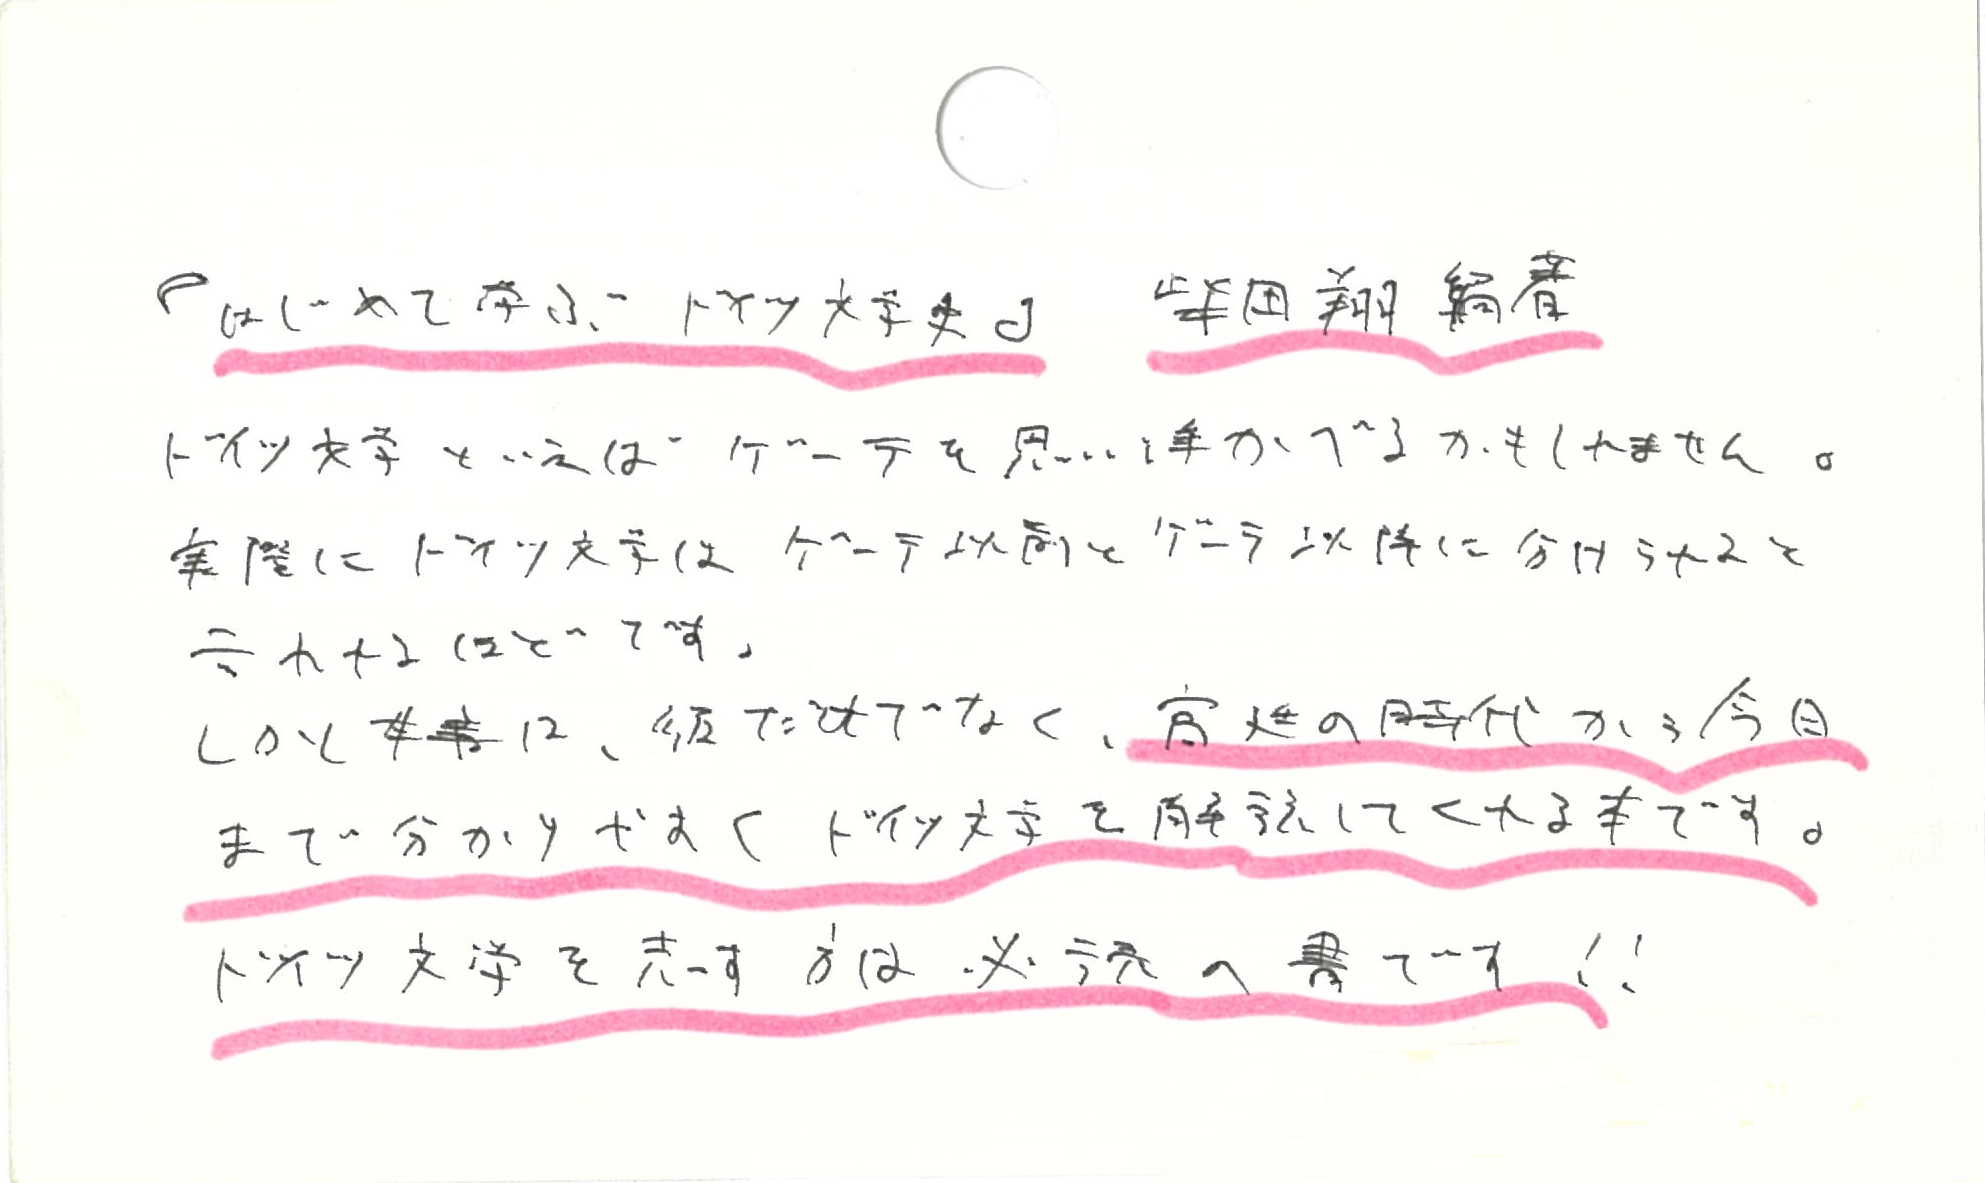 『はじめて学ぶ ドイツ文学史』 柴田翔 編著
ドイツ文学といえばゲーテを思い浮かべるかもしれません。
実際にドイツ文学はゲーテ以前とゲーテ以降に分けられると
言われるほどです。
しかし本書は、それだけでなく、宮廷の時代から今日
まで分かりやすくドイツ文学を解説してくれる本です。
ドイツ文学を志す方は必読の書です!!